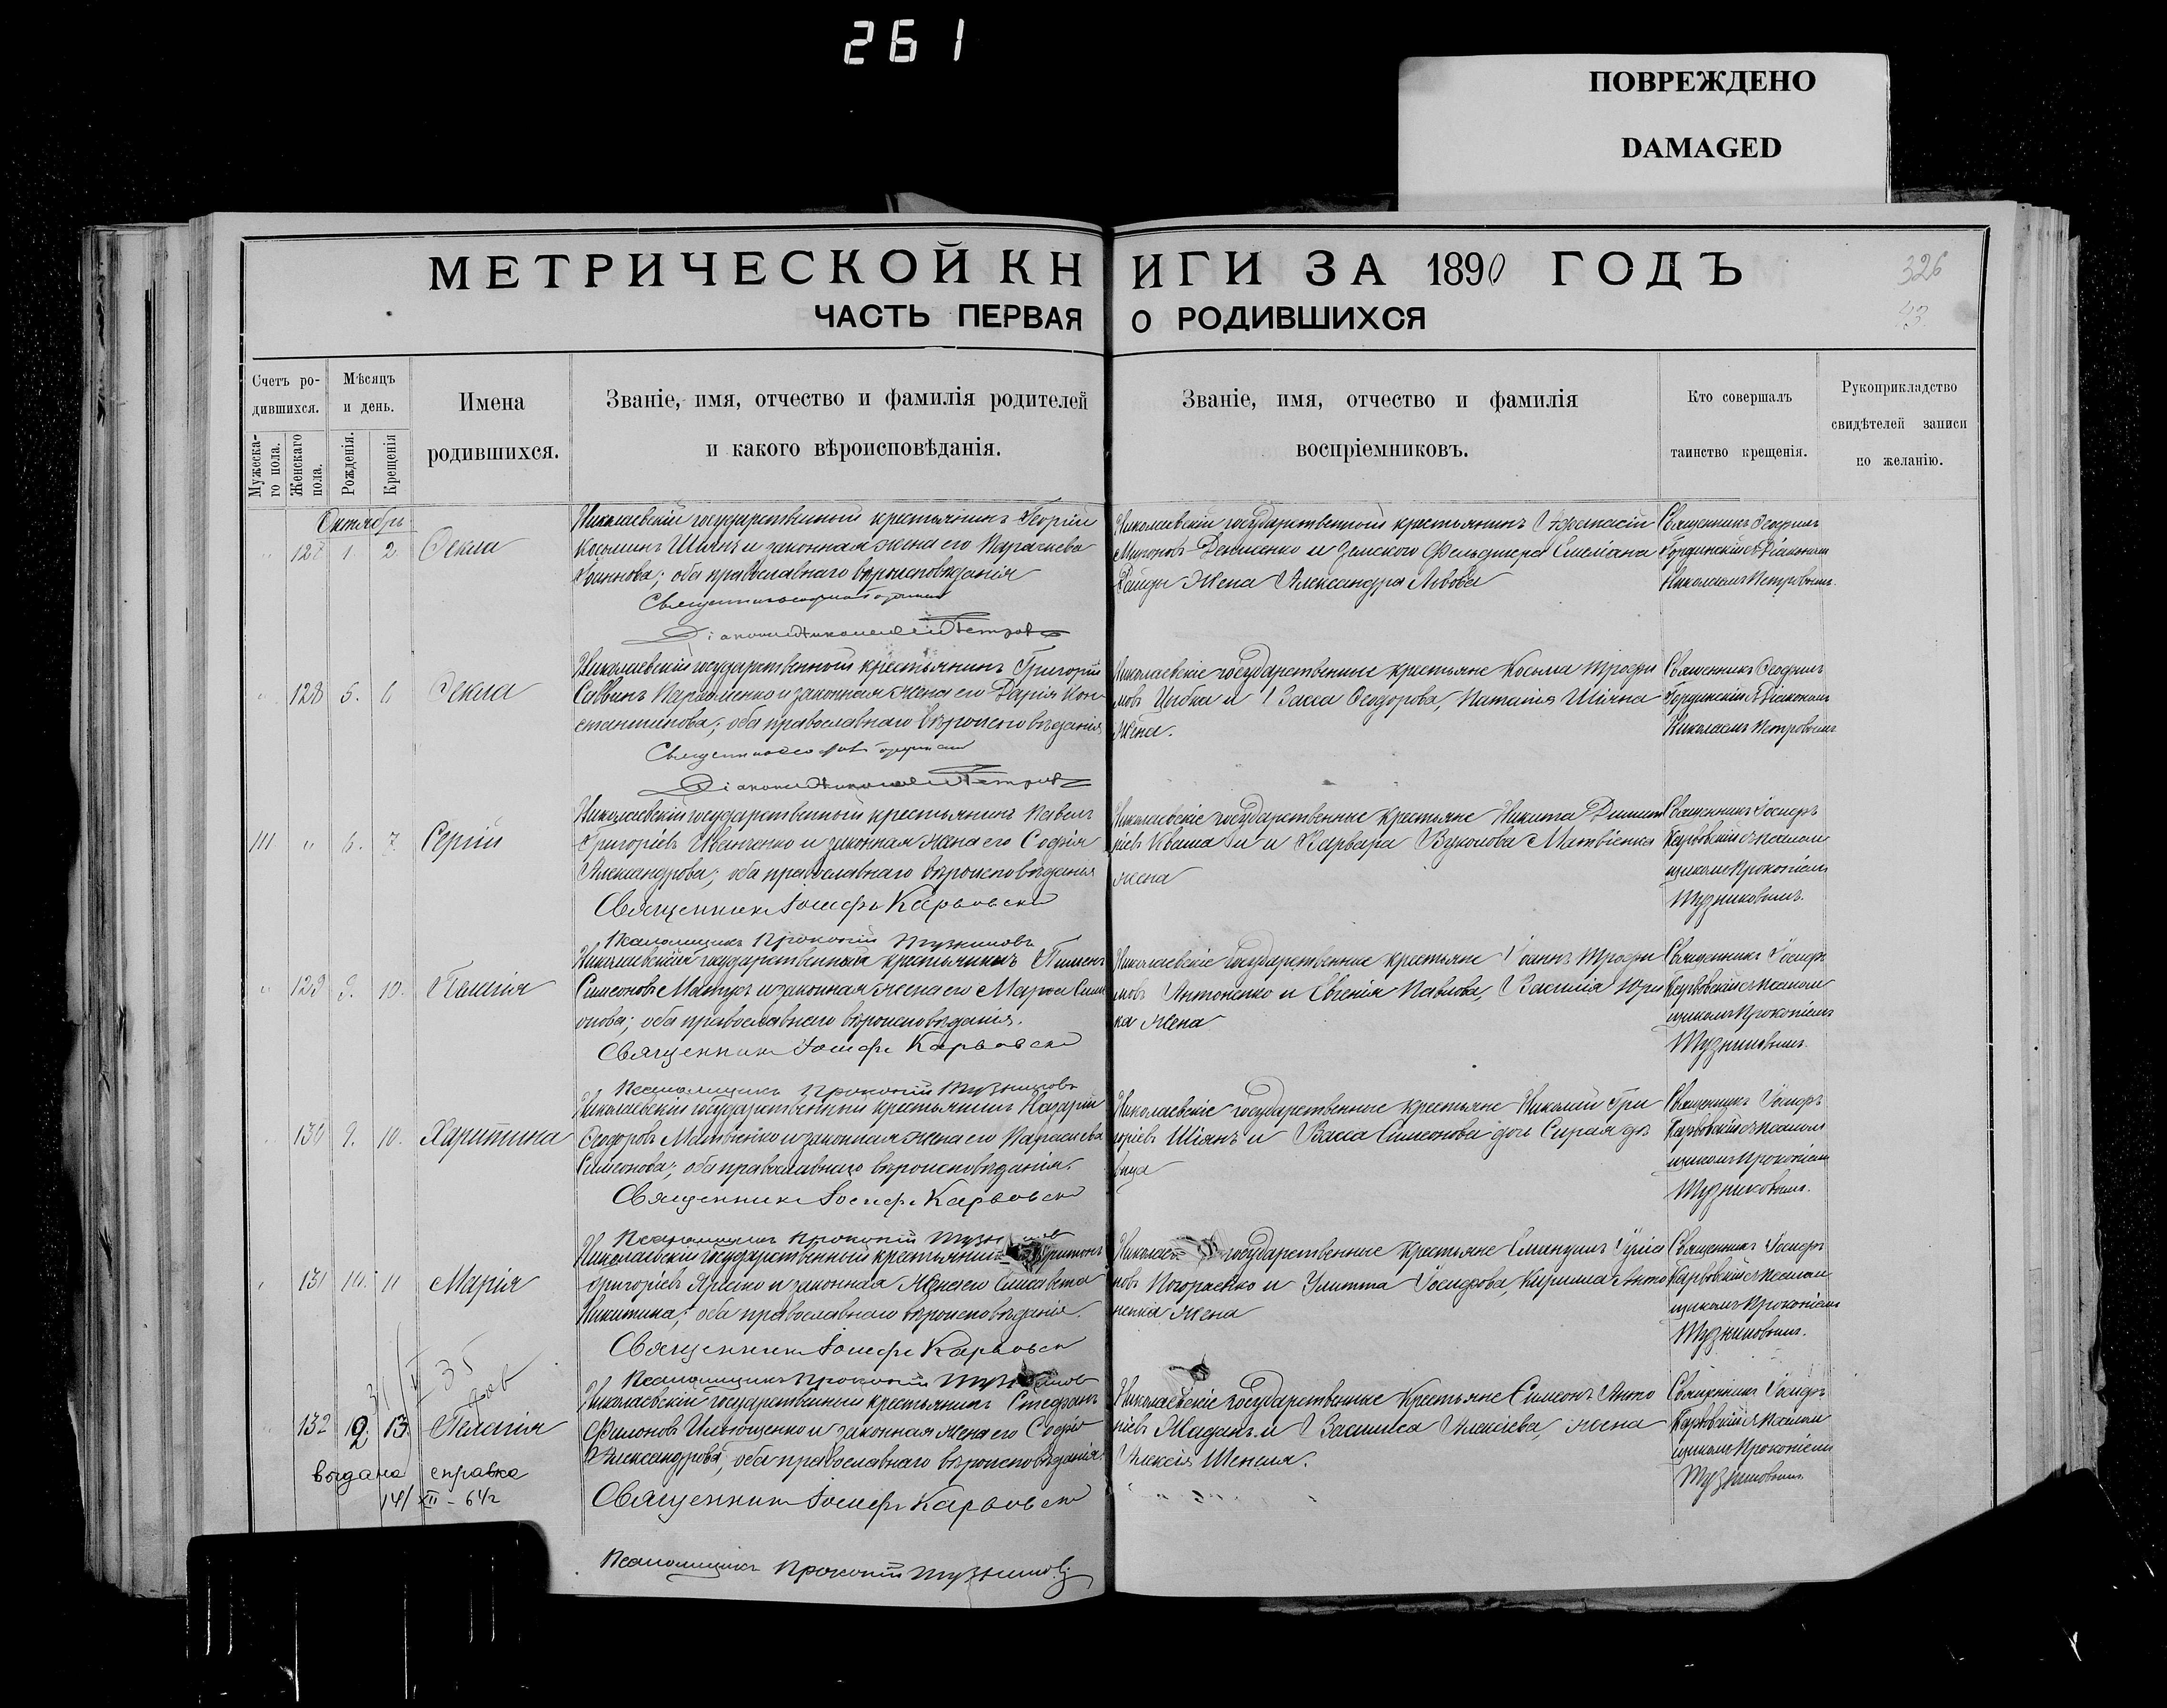 261
ПОВРЕЖДЕНО
DAMAGED
МЕТРИЧЕСКОЙ КНИГИ ЗА 1890 ГОДЪ
326
ЧАСТЬ ПЕРВАЯ О РОДИВШИХСЯ
43
Счетъ ро-
дившихся.
Мужеска-
го пола.
Женскаго
пола.
Мѣсяцъ
и день.
Рожденія.
Крещенія
Имена
родившихся.
Званіе, имя, отчество и фамилія родителей
и какого вѣроисповѣданія.
Званіе, имя, отчество и фамилія
воспріемниковъ.
Кто совершалъ
таинство крещенія.
Рукоприкладство
свидѣтелей записи
по желанію.
Октябрь
127 1. 2. Ѳекла
Николаевскій государственный крестьянинъ Георгій
Косминъ Шіянъ и законная жена его Параскева
Іоаннова; оба православнаго вѣроисповѣданія
Діаконъ Николай Петровъ
Николаевскій государственный крестьянинъ Аѳанасій
Денисенко и земскаго фельдшера Емеліана
жена Александра Львова
Священникъ Ѳеофилъ
съ Діакономъ
Николаемъ Петровымъ.
128 5. 6 Ѳекла
Николаевскій государственный крестьянинъ Григорій
Саввинъ Пархоменко и законная жена его Дарія Кон
стантинова; оба православнаго вѣроисповѣданія
Діаконъ Николай Петровъ
Николаевскіе государственные крестьяне Косьма Трофи
мовъ Цыбка и Васса Ѳеодорова, Шіяна
жена.
Священникъ Ѳеофилъ
съ Діакономъ
Николаемъ Петровымъ
111 " 6. 7. Сергій
Николаевскій государственный крестьянинъ Павелъ
Григоріевъ Иванченко и законная жена его Софія
Александрова; оба православнаго вѣроисповѣданія
Священникъ Іосифъ Карвовскій
Псаломщикъ Прокопій Тузниковъ
Николаевскіе государственные крестьяне Никита Димит
ріевъ Кваша и Варвара Вуколова Матвіенка
жена
Священникъ Іосифъ
Карвовскій съ псалом
щикомъ Прокопіемъ
Тузниковымъ.
" 129 9. 10. Пелагія
Николаевскій государственный крестьянинъ Пименъ
Симеоновъ и законная жена его Марѳа Сими
онова; оба православнаго вѣроисповѣданія.
Священникъ Іосифъ Карвовскій
Псаломщикъ Прокопій Тузниковъ
Николаевскіе государственные крестьяне Іоаннъ Трофи
мовъ Антоненко и Евгенія Павлова, Василія
жена
Священникъ Іосифъ
Карвовскій съ псалом
щикомъ Прокопіемъ
Тузниковымъ.
130 9. 10. Харитина
Николаевскій государственный крестьянинъ Назарій
Ѳеодоровъ Матвіенко и законная жена его Параскева
Симеонова; оба православнаго вѣроисповѣданія.
Священникъ Іосифъ Карвовскій
Псаломщикъ Прокопій
Николаевскіе государственные крестьяне Николай Гри
горіевъ Шіянъ и Васса Симеонова дочь дѣ
вица
Священникъ Іосифъ
Карвовскій съ псалом
щикомъ Прокопіемъ
Тузниковымъ.
131 10. 11 Марія
Николаевскій государственный крестьянинъ
Григоріевъ и законная жена его Елисавета
Никитина; оба православнаго вѣроисповѣданія.
Священникъ Іосифъ Карвовскій
Псаломщикъ Прокопій
государственные крестьяне
и Улитта Іосифова, Кирилла Анто
ненка жена
Священникъ Іосифъ
Карвовскій съ псалом
щикомъ Прокопіемъ
Тузниковымъ.
132 12. 13. Пелагія
Николаевскій государственный крестьянинъ Стефанъ
Филоновъ Ильющенко и законная жена его Софія
Александрова, оба православнаго вѣроисповѣданія.
Священникъ Іосифъ Карвовскій
Псаломщикъ Прокопій Тузниковъ
Николаевскіе государственные крестьяне Симеонъ Анто
ніевъ и Василиса Алексіева, жена
Алексія
Священникъ Іосифъ
Карвовскій съ псалом
щикомъ Прокопіемъ
Тузниковымъ.
выдана справка
14/XII - 64г